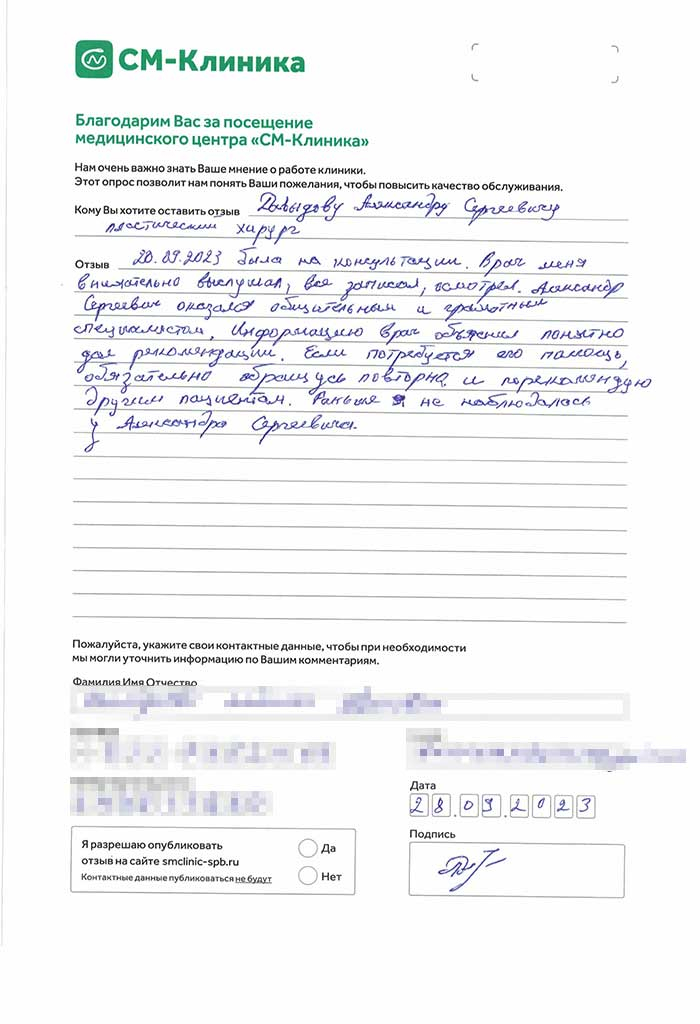 СМ-Клиника
Благодарим Вас за посещение
медицинского центра «СМ-Клиника»
Нам очень важно знать Ваше мнение о работе клиники.
Этот опрос позволит нам понять Ваши пожелания, чтобы повысить качество обслуживания.
Кому Вы хотите оставить отзыв Давыдову Александру Сергеевичу
пластический хирург
Отзыв 20.09.2023 была на консультации. Врач меня
внимательно выслушал, все записал, осмотрел. Александр
Сергеевич оказался общительным и грамотным
специалистом. Информацию врач объяснил понятно
дал рекомендации. Если потребуется его помощь,
обязательно обращусь повторно и порекомендую
другим пациентам. Раньше я не наблюдалась
у Александра Сергеевича.
Пожалуйста, укажите свои контактные данные, чтобы при необходимости
мы могли уточнить информацию по Вашим комментариям.
Фамилия Имя Отчество
Дата
28.09.2023
Подпись
Я разрешаю опубликовать
отзыв на сайте smclinic-spb.ru
Контактные данные публиковаться не будут
Да
Нет